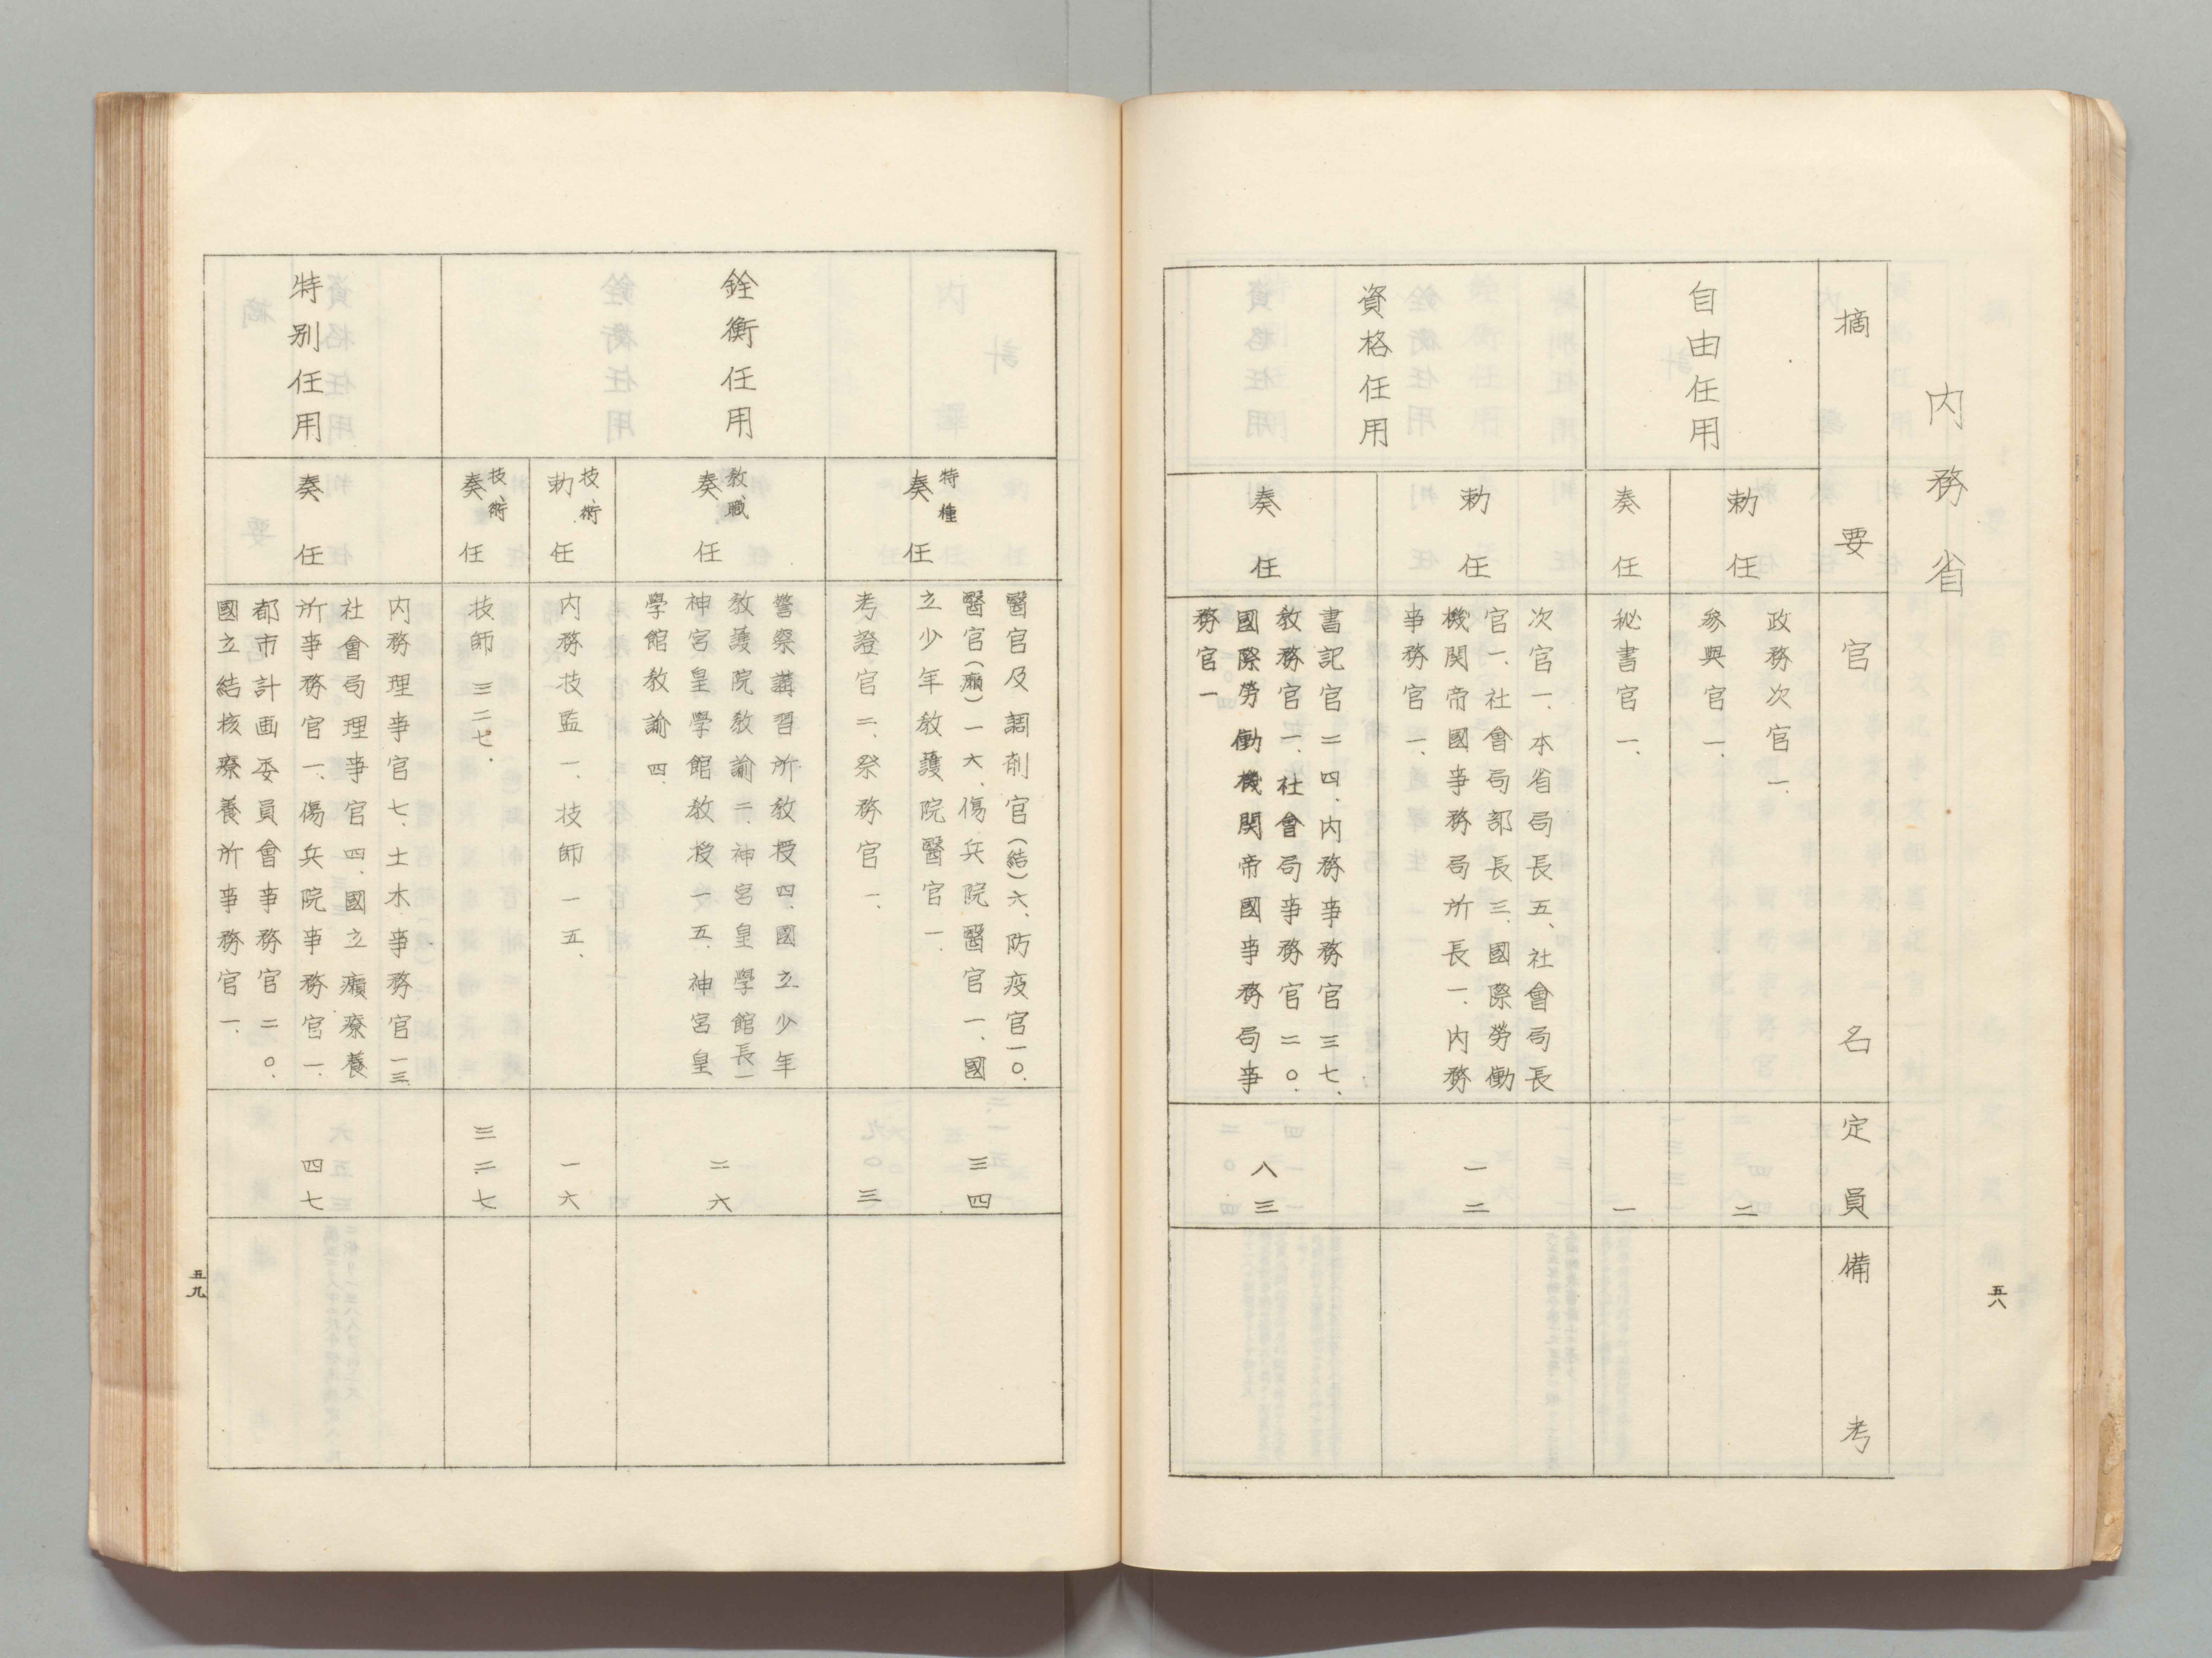 内務省
摘要
官名
定員
備考
自由任用
勅任
政務次官一、
參與官一、
二
奏任
秘書官一、
一
資格任用
勅任
次官一、本省局長五、社會局長
官一、社會局部長三、國際勞働
機関帝國事務局所長一、内務
事務官一、
一二
奏任
書記官二四、内務事務官三七、
教務官一、社會局事務官二〇、
國際勞働機関帝國事務局事
務官一
八三
五八
銓衡任用
特種
奏任
醫官及調剤官(結)六、防疫官一〇、
醫官(癩)一六、傷兵院醫官一、國
立少年教護院醫官一、
三四
考證官二、祭務官一、
三
教職
奏任
警察講習所教授四、國立少年
教護院教諭二、神宮皇學館長一
神宮皇學館教授一五、神宮皇
學館教諭四、
二六
技術
勅任
内務技監一、技師一五、
一六
技術
奏任
技師三二七、
三二七
特別任用
奏任
内務理事官七、土木事務官一三
社會局理事官四、國立癩療養
所事務官一、傷兵院事務官一、
都市計画委員會事務官二〇、
國立結核療養所事務官一、
四七
五九